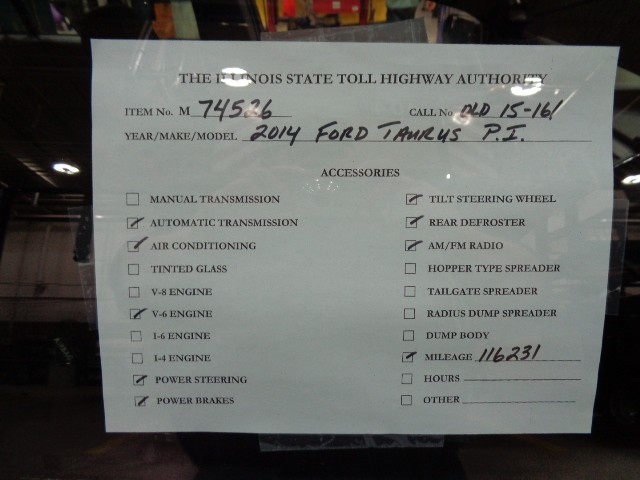 THE ILLINOIS STATE TOLL HIGHWAY AUTHORITY
ITEM No. M 74526 CALL No. OLD 15-161
YEAR/MAKE/MODEL 2014 FORD TAURUS P.I.
ACCESSORIES
MANUAL TRANSMISSION
AUTOMATIC TRANSMISSION
AIR CONDITIONING
TINTED GLASS
V-8 ENGINE
V-6 ENGINE
I-6 ENGINE
I-4 ENGINE
POWER STEERING
POWER BRAKES
TILT STEERING WHEEL
REAR DEFROSTER
AM/FM RADIO
HOPPER TYPE SPREADER
TAILGATE SPREADER
RADIUS DUMP SPREADER
DUMP BODY
MILEAGE 116231
HOURS
OTHER